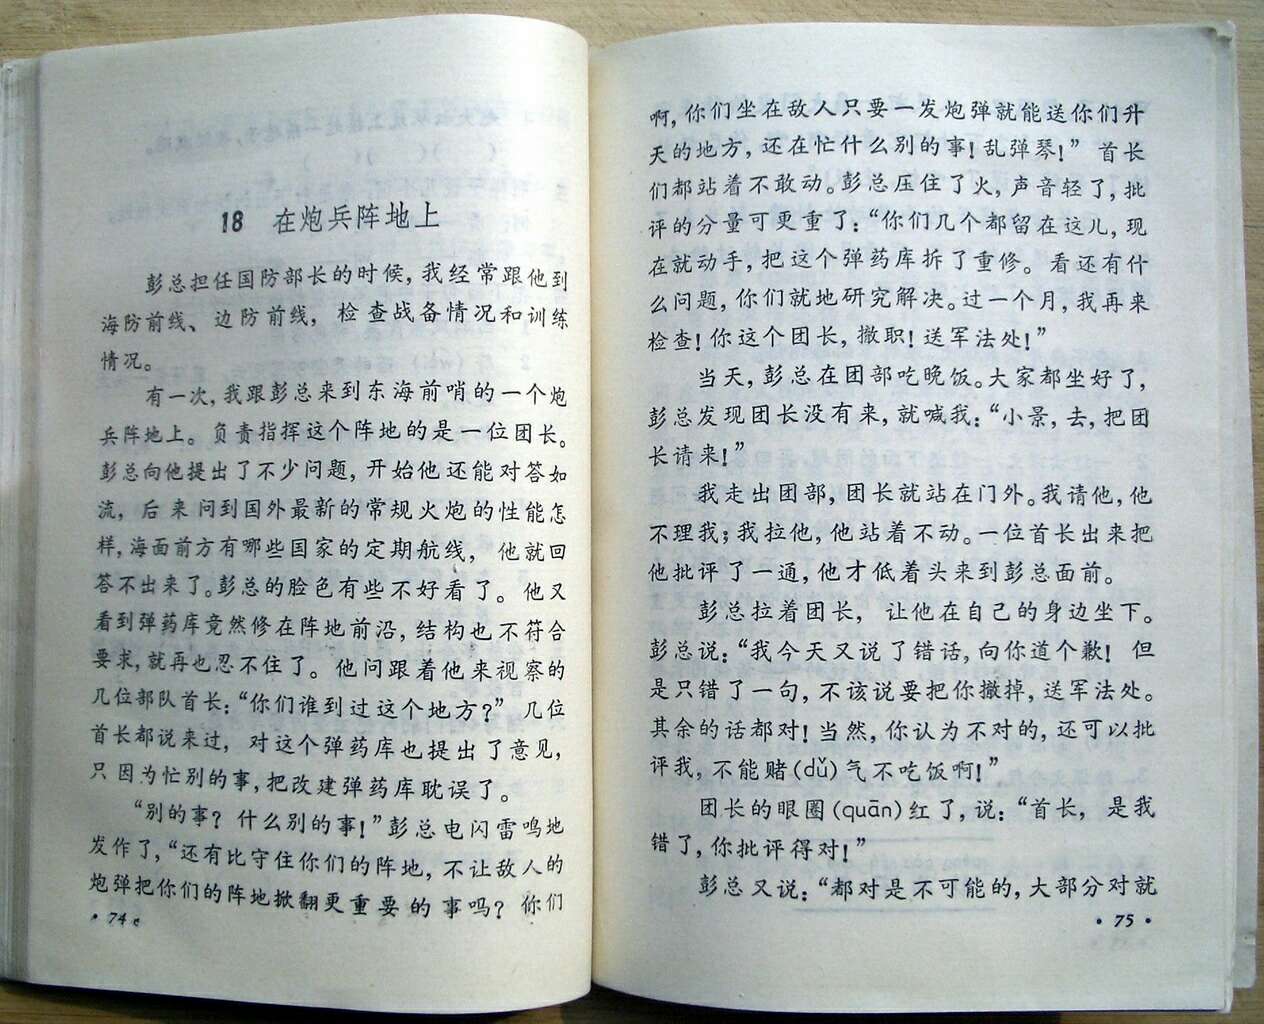 18 在炮兵阵地上
彭总担任国防部长的时候，我经常跟他到
海防前线、边防前线，检查战备情况和训练
情况。
有一次，我跟彭总来到东海前哨的一个炮
兵阵地上。负责指挥这个阵地的是一位团长。
彭总向他提出了不少问题，开始他还能对答如
流，后来问到国外最新的常规火炮的性能怎
样，海面前方有哪些国家的定期航线，他就回
答不出来了。彭总的脸色有些不好看了。他又
看到弹药库竟然修在阵地前沿，结构也不符合
要求，就再也忍不住了。他问跟着他来视察的
几位部队首长：“你们谁到过这个地方？”几位
首长都说来过，对这个弹药库也提出了意见，
只因为忙别的事，把改建弹药库耽误了。
“别的事？什么别的事！”彭总电闪雷鸣地
发作了，“还有比守住你们的阵地，不让敌人的
炮弹把你们的阵地掀翻更重要的事吗？你们
·74
啊，你们坐在敌人只要一发炮弹就能送你们升
天的地方，还在忙什么别的事！乱弹琴！”首长
们都站着不敢动。彭总压住了火，声音轻了，批
评的分量可更重了：“你们几个都留在这儿，现
在就动手，把这个弹药库拆了重修。看还有什
么问题，你们就地研究解决。过一个月，我再来
检查！你这个团长，撤职！送军法处！”
当天，彭总在团部吃晚饭。大家都坐好了，
彭总发现团长没有来，就喊我：“小景，去，把团
长请来！”
我走出团部，团长就站在门外。我请他，他
不理我；我拉他，他站着不动。一位首长出来把
他批评了一通，他才低着头来到彭总面前。
彭总拉着团长，让他在自己的身边坐下。
彭总说：“我今天又说了错话，向你道个歉！但
是只错了一句，不该说要把你撤掉，送军法处。
其余的话都对！当然，你认为不对的，还可以批
评我，不能赌(dǔ)气不吃饭啊！”
团长的眼圈(quān)红了，说：“首长，是我
错了，你批评得对！”
彭总又说：“都对是不可能的，大部分对就
·75·